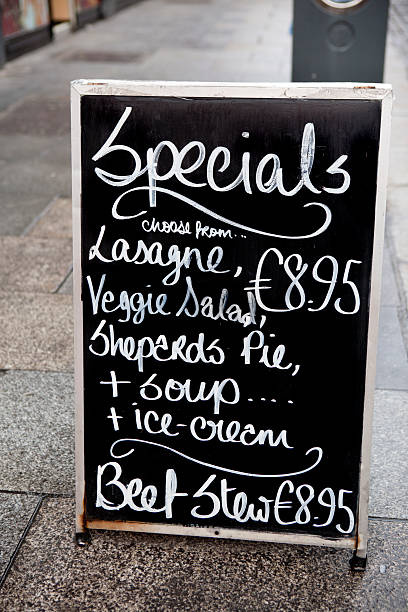 Specials
choose from...
Lasagne, €8.95
Veggie Salad,
Sheperds Pie,
+ soup....
+ ice-cream
Beef Stew €8.95